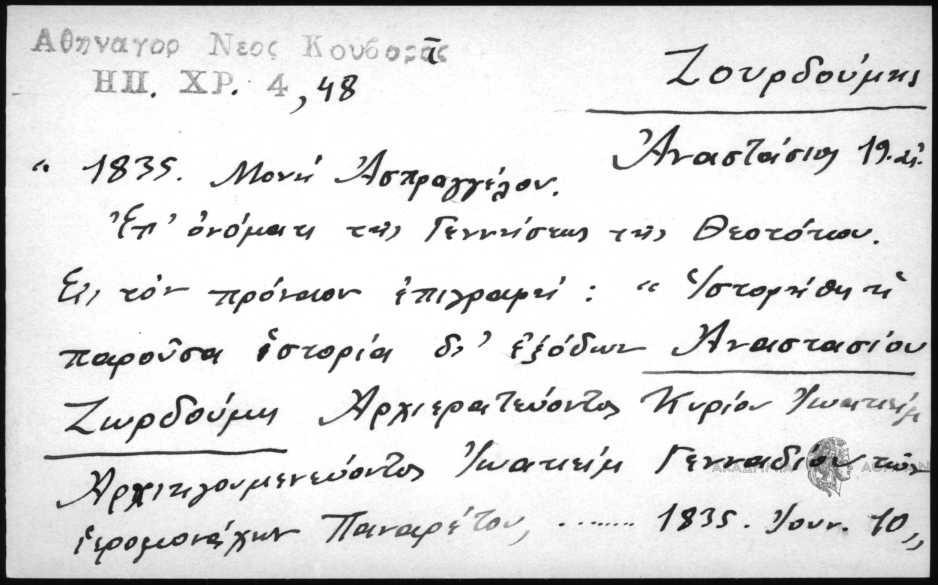 Αθηναγορ Νεος Κουβαρᾶς
ΗΠ. ΧΡ. 4, 48
Ζουρδούμης
Ἀναστάσιος 19. αἰ.
“ 1835. Μονὴ Ἀσπραγγέλου.
Ἐπ' ὀνόματι τῆς Γεννήσεως τῆς Θεοτόκου.
Εἰς τὸν πρόναον ἐπιγραφή : “ Ἱστορήθη ἡ
παροῦσα ἱστορία δι' ἐξόδων Ἀναστασίου
Ζωρδούμη Ἀρχιερατεύοντος Κυρίου Ἰωακεὶμ
Ἀρχιηγουμενεύοντος Ἰωακεὶμ Γενναδίου τῶν
ἱερομονάχων Παναρέτου, ........ 1835. Ἰουν. 10 „
ΑΚΑΔΗΜΙΑ ΑΘΗΝΩΝ